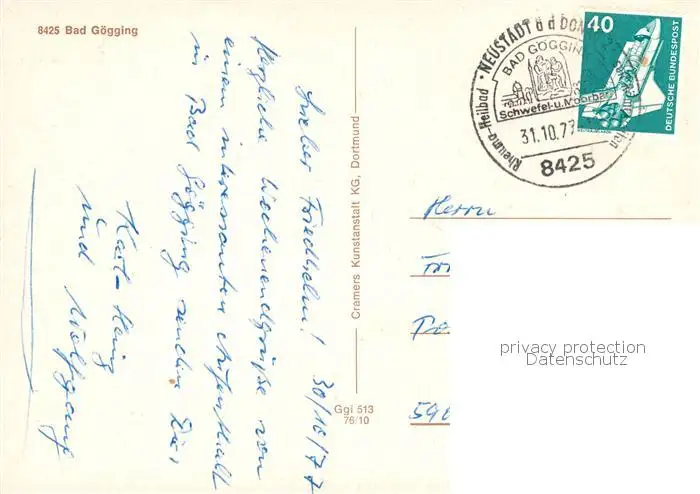 8425 Bad Gögging
Lieber Friedhelm! 30/10/77
Herzliche Wochenendgrüße von
einem interessanten Aufenthalt
in Bad Gögging senden Dir
Karl-Heinz
und Wolfgang
Cramers Kunstanstalt KG, Dortmund
Ggi 513
76/10
NEUSTADT a d DON
BAD GÖGGIN
Schwefel-u. Moorbad
Rheuma-Heilbad
31.10.77
8425
40
DEUTSCHE BUNDESPOST
Herrn
590
privacy protection
Datenschutz